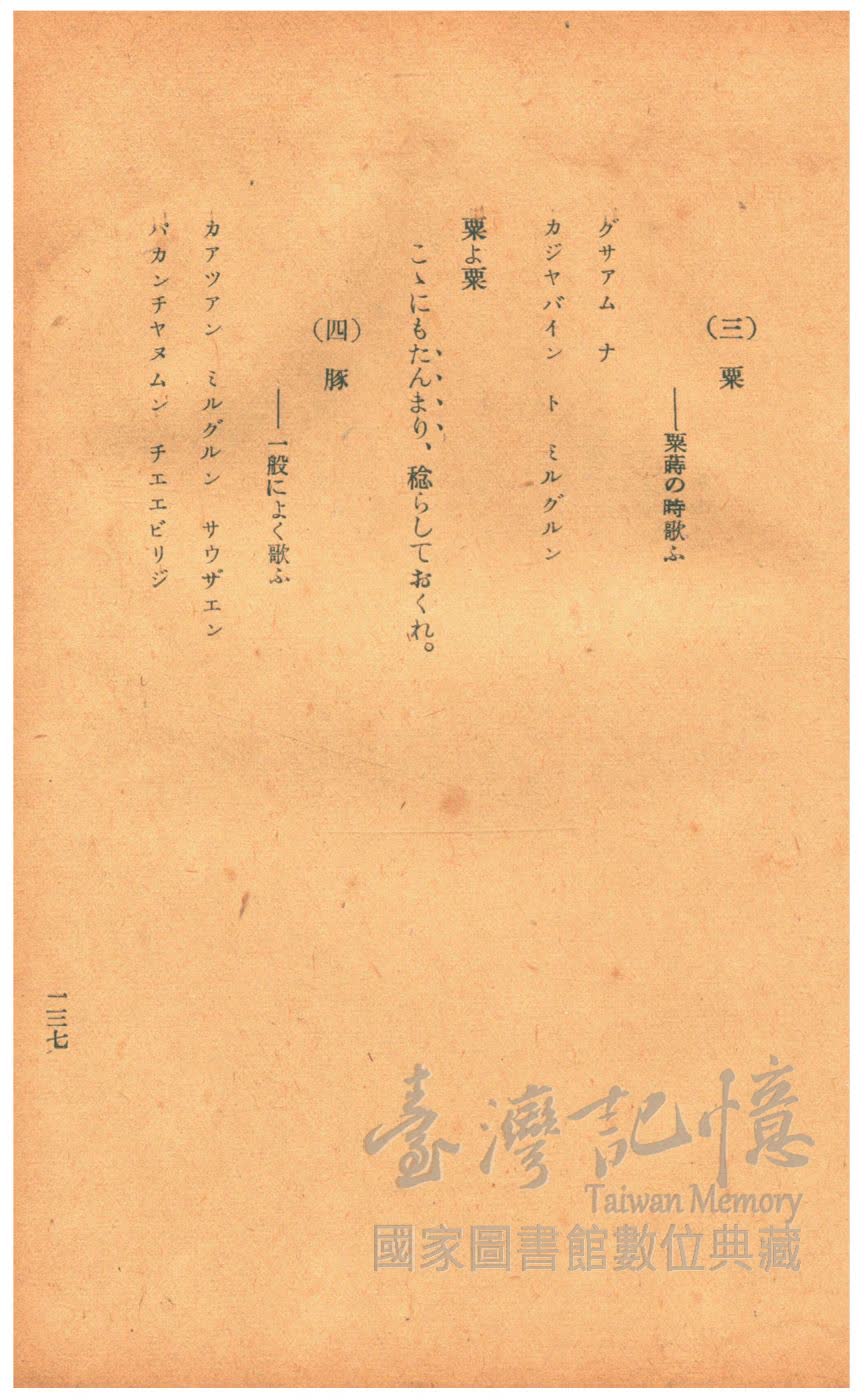 （三）　粟
――粟蒔の時歌ふ
グサアム　ナ
カジヤバイン　ト　ミルグルン
粟よ粟
こゝにもたんまり、稔らしておくれ。
（四）　豚
――一般によく歌ふ
カアツアン　ミルグルン　サウザエン
パカンチヤヌムン　チエエビリジ
一三七
臺灣記憶
Taiwan Memory
國家圖書館數位典藏